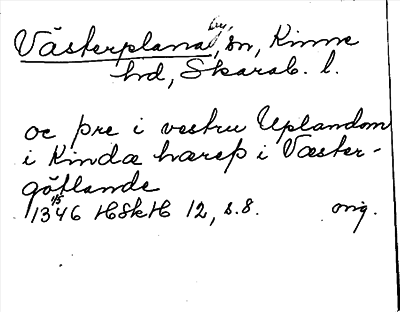 Västerplana by, sn, Kinne
hd, Skarab. l.
oc þre i vestru Uplandom
i Kinda hæreþ i Væster-
götlande
1346 1/5 HSkH 12, s. 8. orig.